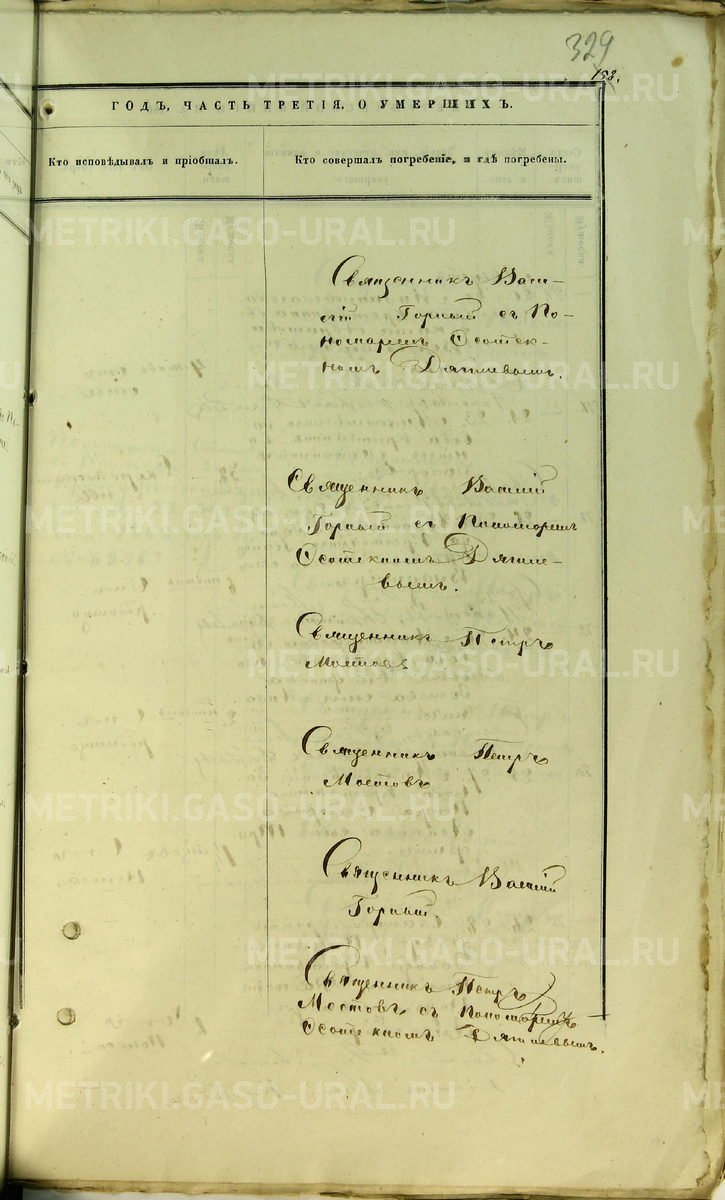 329
158.
ГОДЪ, ЧАСТЬ ТРЕТІЯ, О УМЕРШИХЪ.
Кто исповѣдывалъ и пріобщалъ.
Кто совершалъ погребеніе, и гдѣ погребены.
Священникъ Васи-
лій Горный съ По-
номаремъ
Дягилевымъ.
Священникъ Василій
Горный съ Пономаремъ
Дягиле-
вымъ.
Священникъ Петръ
Мостовъ
Священникъ Петръ
Мостовъ
Священникъ Василій
Горный.
Священникъ Петръ
Мостовъ съ Пономаремъ
Дягилевымъ.
METRIKI.GASO-URAL.RU